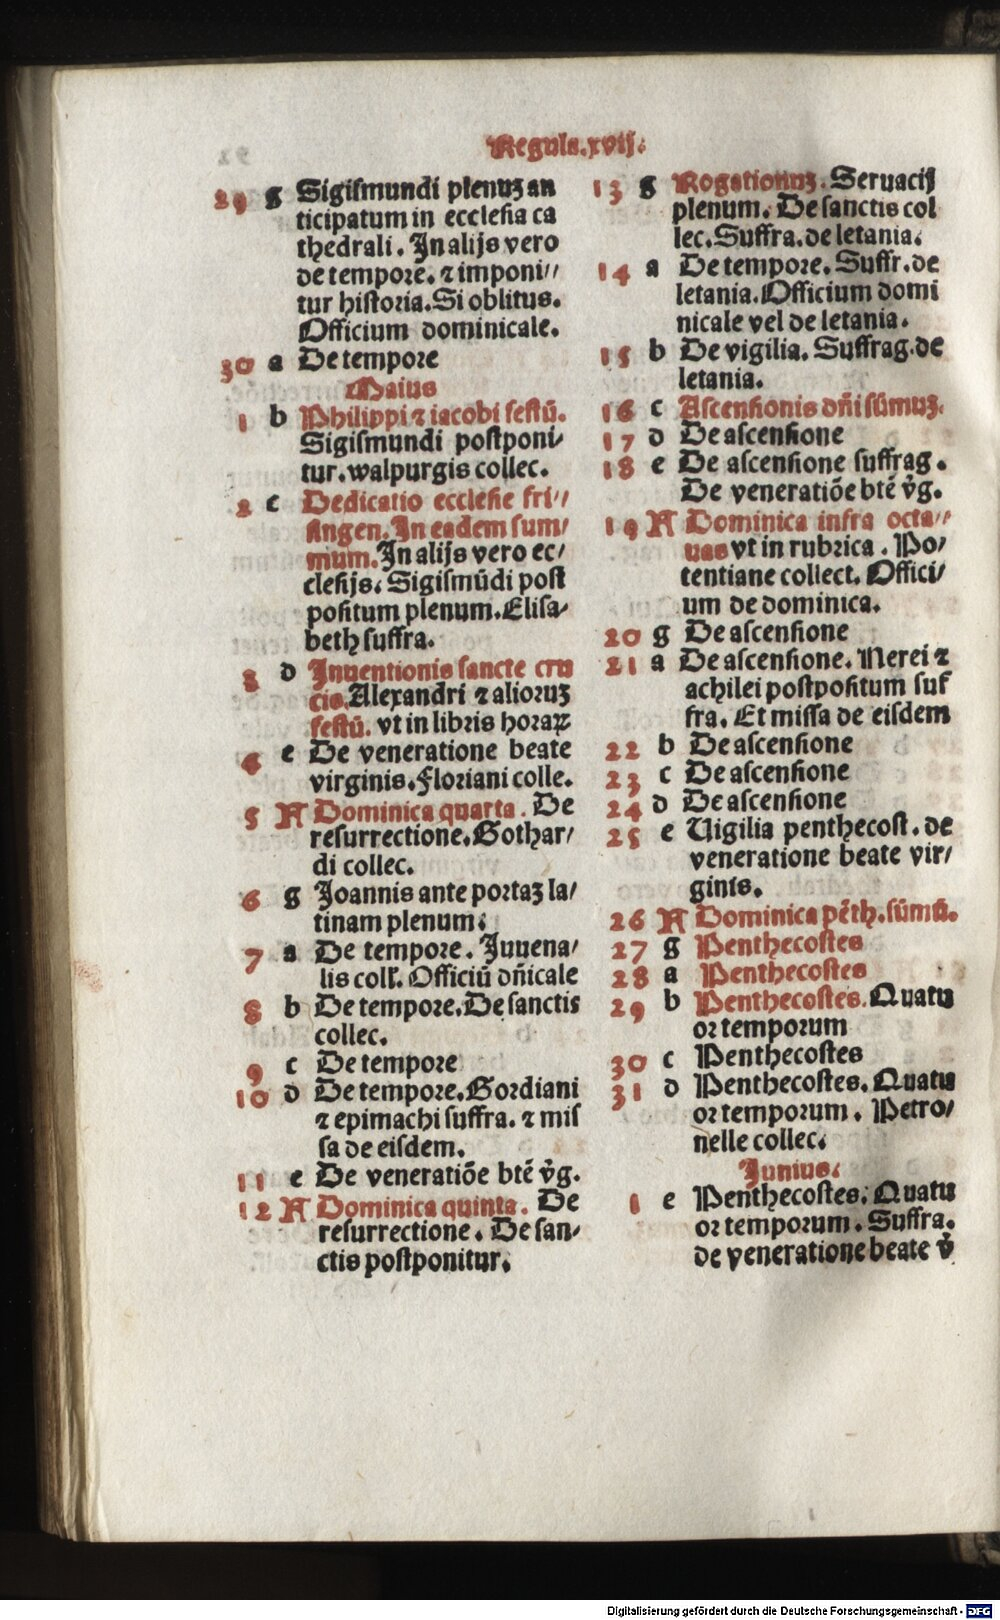 Regula.xvij.
29 g Sigiſmundi plenuꝫ an
ticipatum in eccleſia ca
thedrali. In alijs vero
de tempore. ⁊ imponi//
tur hiſtoria. Si oblitus.
Officium dominicale.
30 a De tempore
Maius
1 b Philippi ⁊ iacobi feſtū.
Sigiſmundi poſtponi/
tur. walpurgis collec.
2 c Dedicatio eccleſie fri//
ſingen. In eadem ſum/
mum. In alijs vero ec/
cleſijs. Sigiſmūdi poſt
poſitum plenum. Eliſa/
beth ſuffra.
3 d Inuentionis ſancte cru
cis. Alexandri ⁊ alioruꝫ
feſtū. vt in libris horaꝝ
4 e De veneratione beate
virginis. Floriani colle.
5 A Dominica quarta. De
reſurrectione. Gothar/
di collec.
6 g Joannis ante portaꝫ la/
tinam plenum.
7 a De tempore. Juuena/
lis coll. Officiū dn̄icale
8 b De tempore. De ſanctis
collec.
9 c De tempore
10 d De tempore. Gordiani
⁊ epimachi ſuffra. ⁊ miſ
ſa de eiſdem.
11 e De veneratiōe btē v̄g.
12 A Dominica quinta. De
reſurrectione. De ſan/
ctis poſtponitur.
13 g Rogationuꝫ. Seruacij
plenum. De ſanctis col
lec. Suffra. de letania.
14 a De tempore. Suffr. de
letania. Officium domi
nicale vel de letania.
15 b De vigilia. Suffrag. de
letania.
16 c Aſcenſionis dn̄i ſūmuꝫ.
17 d De aſcenſione
18 e De aſcenſione ſuffrag.
De veneratiōe btē v̄g.
19 A Dominica infra octa//
uas vt in rubrica. Po/
tentiane collect. Offici/
um de dominica.
20 g De aſcenſione
21 a De aſcenſione. Nerei ⁊
achilei poſtpoſitum ſuf
fra. Et miſſa de eiſdem
22 b De aſcenſione
23 c De aſcenſione
24 d De aſcenſione
25 e Uigilia penthecoſt. de
veneratione beate vir/
ginis.
26 A Dominica pēth. ſūmū.
27 g Penthecoſtes
28 a Penthecoſtes
29 b Penthecoſtes. Quatu
or temporum
30 c Penthecoſtes
31 d Penthecoſtes. Quatu
or temporum. Petro/
nelle collec.
Junius.
1 e Penthecoſtes. Quatu
or temporum. Suffra.
de veneratione beate v̄
Digitalisierung gefördert durch die Deutsche Forschungsgemeinschaft - DFG